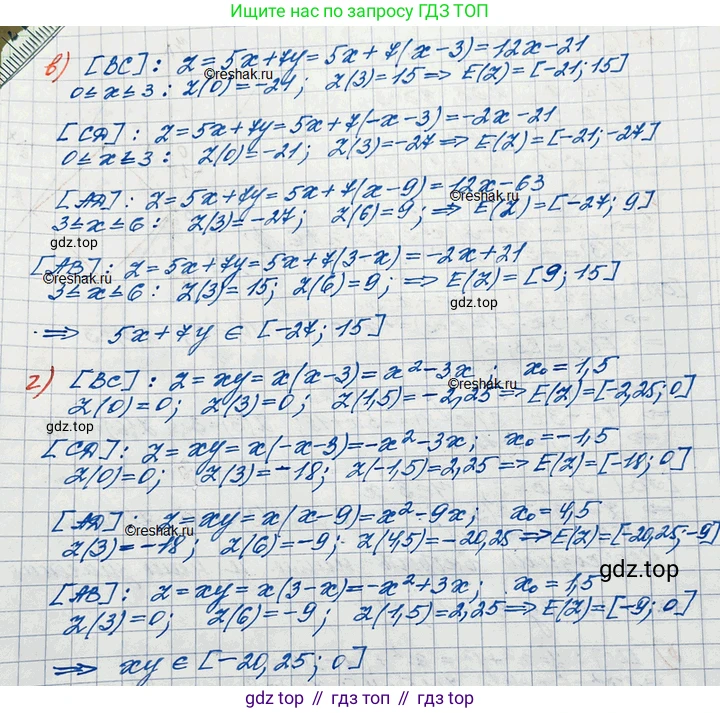 больше решений по запросу ГДЗ ТОП
в) [BC]: z = 5x + 7y = 5x + 7(x - 3) = 12x - 21
0 ≤ x ≤ 3: z(0) = -21; z(3) = 15 ⇒ E(z) = [-21; 15]
©reshak.ru
[CD]: z = 5x + 7y = 5x + 7(-x - 3) = -2x - 21
0 ≤ x ≤ 3: z(0) = -21; z(3) = -27 ⇒ E(z) = [-21; -27]
[AD]: z = 5x + 7y = 5x + 7(x - 9) = 12x - 63
©reshak.ru
3 ≤ x ≤ 6: z(3) = -27; z(6) = 9; ⇒ E(z) = [-27; 9]
gdz.top
[AB]: z = 5x + 7y = 5x + 7(3 - x) = -2x + 21
©reshak.ru
3 ≤ x ≤ 6: z(3) = 15; z(6) = 9; ⇒ E(z) = [9; 15]
gdz.top
⇒ 5x + 7y ∈ [-27; 15]
г) [BC]: z = xy = x(x - 3) = x² - 3x; x₀ = 1,5
©reshak.ru
z(0) = 0; z(3) = 0; z(1,5) = -2,25 ⇒ E(z) = [-2,25; 0]
gdz.top
[CD]: z = xy = x(-x - 3) = -x² - 3x; x₀ = -1,5
z(0) = 0; z(3) = -18; z(-1,5) = 2,25 ⇒ E(z) = [-18; 0]
[AD]: z = xy = x(x - 9) = x² - 9x; x₀ = 4,5
©reshak.ru
z(3) = -18; z(6) = -9; z(4,5) = -20,25 ⇒ E(z) = [-20,25; -9]
gdz.top
[AB]: z = xy = x(3 - x) = -x² + 3x; x₀ = 1,5
z(3) = 0; z(6) = -9; z(1,5) = 2,25 ⇒ E(z) = [-9; 0]
⇒ xy ∈ [-20,25; 0]
gdz top // гдз топ // gdz top // гдз топ